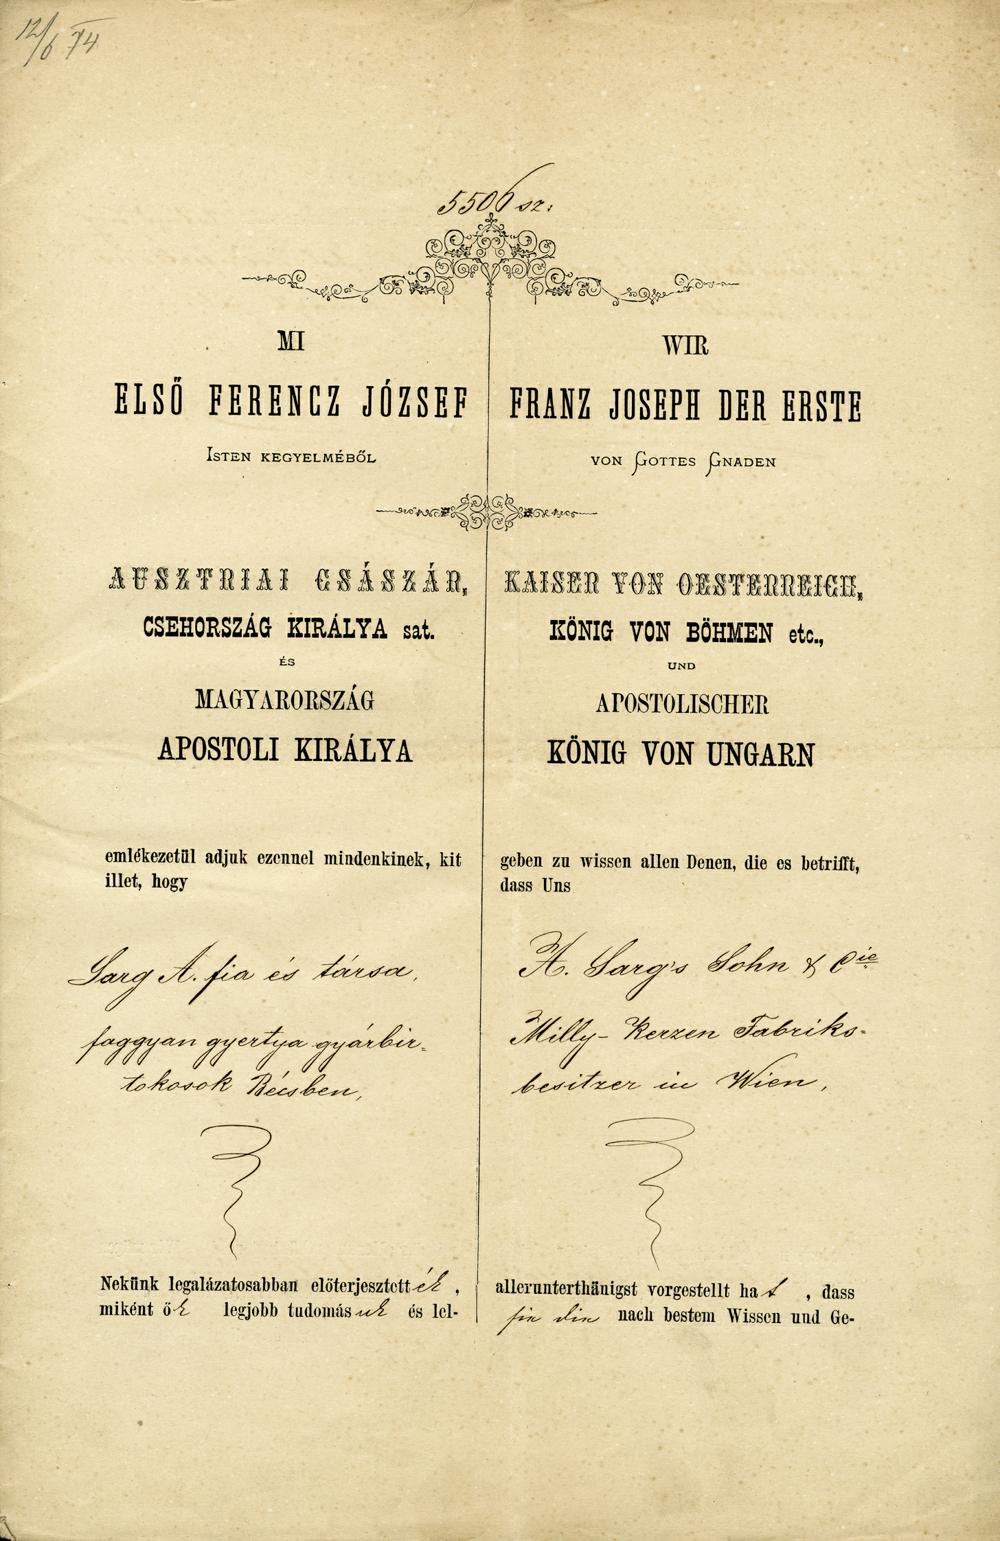 12/6 74
5506 sz:
MI
ELSŐ FERENCZ JÓZSEF
ISTEN KEGYELMÉBŐL
AUSZTRIAI CSÁSZÁR,
CSEHORSZÁG KIRÁLYA sat.
ÉS
MAGYARORSZÁG
APOSTOLI KIRÁLYA
emlékezetül adjuk ezennel mindenkinek, kit
illet, hogy
Sarg A. fia és társa,
faggyan gyertya gyárbir=
tokosok Bécsben,
Nekünk legalázatosabban előterjesztették,
miként ők legjobb tudomásuk és lel-
WIR
FRANZ JOSEPH DER ERSTE
VON GOTTES GNADEN
KAISER VON OESTERREICH,
KÖNIG VON BÖHMEN etc.,
UND
APOSTOLISCHER
KÖNIG VON UNGARN
geben zu wissen allen Denen, die es betrifft,
dass Uns
A. Sarg's Sohn & Cie
Milly-Kerzen Fabriks-
besitzer in Wien,
allerunterthänigst vorgestellt hat, dass
sie die nach bestem Wissen und Ge-